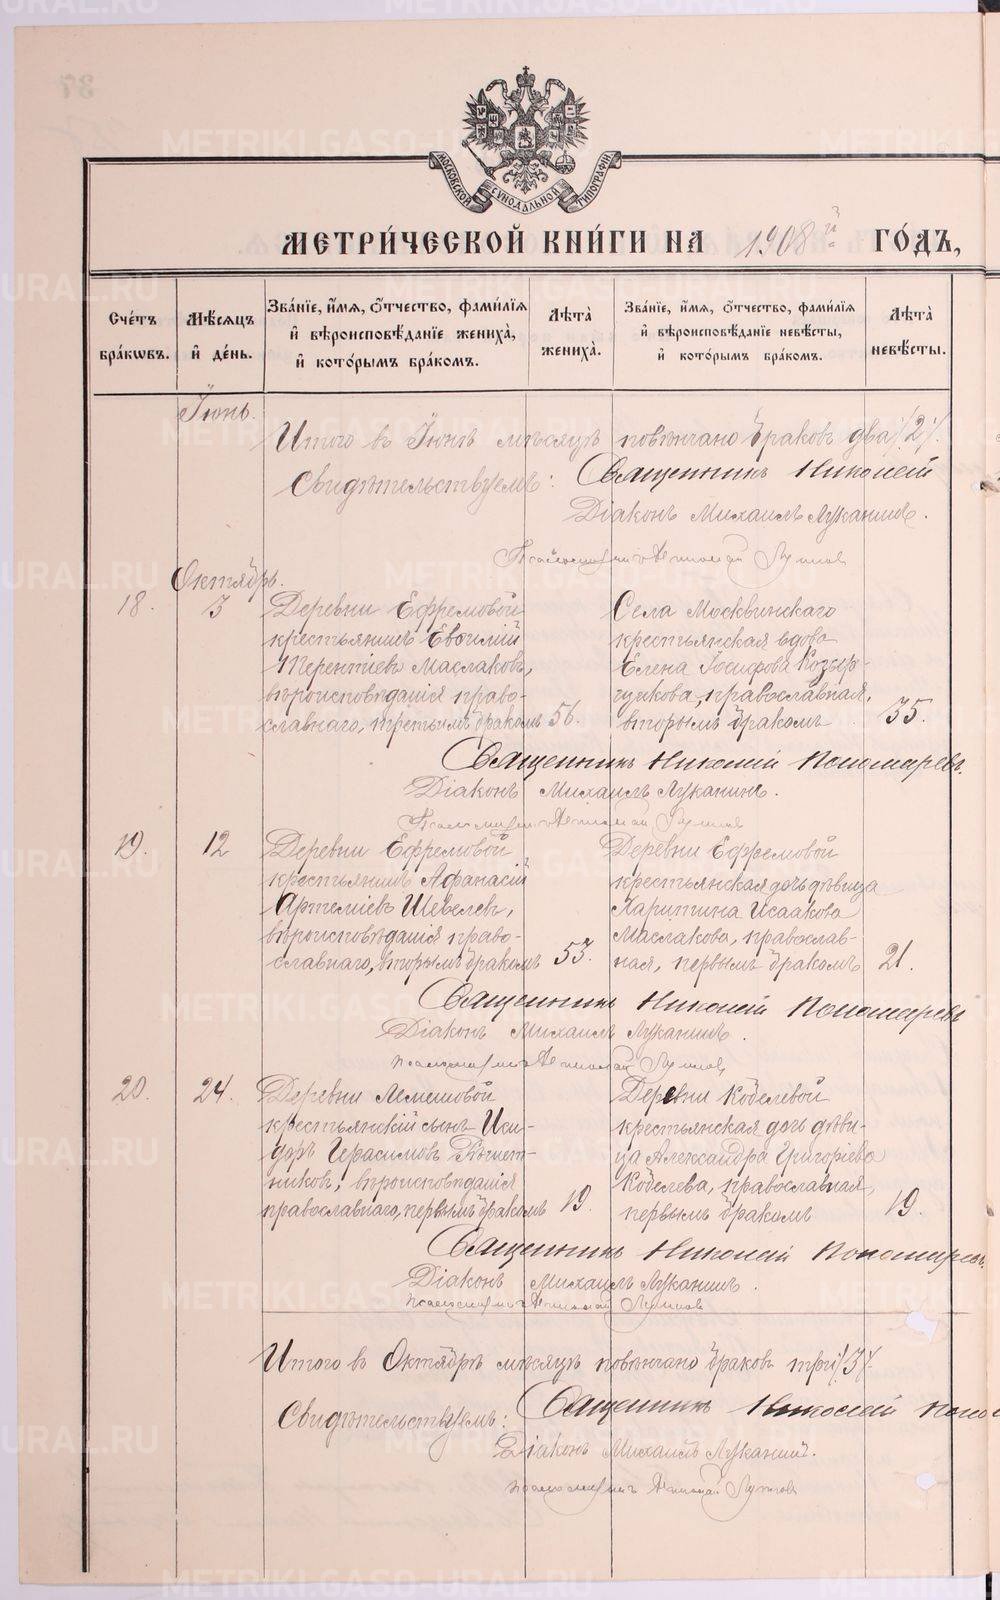 МОСКОВСКОЙ СѴНОДАЛЬНОЙ ТИПОГРАФІИ
МЕТРИ́ЧЕСКОЙ КНИ́ГИ НА 1908й ГО́ДЪ,
Сче́тъ бра́кѡвъ.
Мѣ́сяцъ и҆ де́нь.
Зва́нїе, и҆́мѧ, ѻ҆́тчество, фами́лїѧ и҆ вѣроисповѣ́данїе женихà, и҆ кото́рымъ бра́комъ.
Лѣ́та женихà.
Зва́нїе, и҆́мѧ, ѻ҆́тчество, фами́лїѧ и҆ вѣроисповѣ́данїе невѣ́сты, и҆ кото́рымъ бра́комъ.
Лѣ́та невѣ́сты.
Іюнь.
Итого въ Іюнѣ мѣсяцѣ повѣнчано браковъ два /2/.
Свидѣтельствуемъ: Священникъ Николай
Діаконъ Михаилъ Луканинъ.
Октябрь.
18. 3
Деревни Ефремовой
крестьянинъ Евѳимій
Терентіевъ Маслаковъ,
вѣроисповѣданія право-
славнаго, третьимъ бракомъ 56.
Села Москвинскаго
крестьянская вдова
Елена Іосифова Козыр-
чикова, православная,
вторымъ бракомъ 35.
Священникъ Николай Пономаревъ.
Діаконъ Михаилъ Луканинъ.
19. 12
Деревни Ефремовой
крестьянинъ Афанасій
Артеміевъ Шевелевъ,
вѣроисповѣданія право-
славнаго, вторымъ бракомъ 53.
Деревни Ефремовой
крестьянская дочь дѣвица
Харитина Исаакова
Маслакова, православ-
ная, первымъ бракомъ 21.
Священникъ Николай Пономаревъ
Діаконъ Михаилъ Луканинъ.
20. 24.
Деревни Лемешовой
крестьянскій сынъ Иси-
доръ Герасимовъ
вѣроисповѣданія
православнаго, первымъ бракомъ 19.
Деревни Кобелевой
крестьянская дочь дѣви-
ца Александра Григоріева
Кобелева, православная,
первымъ бракомъ 19.
Священникъ Николай Пономаревъ.
Діаконъ Михаилъ Луканинъ.
Итого въ Октябрѣ мѣсяцѣ повѣнчано браковъ три /3/.
Свидѣтельствуемъ: Священникъ Николай
Діаконъ Михаилъ Луканинъ.
METRIKI.GASO-URAL.RU